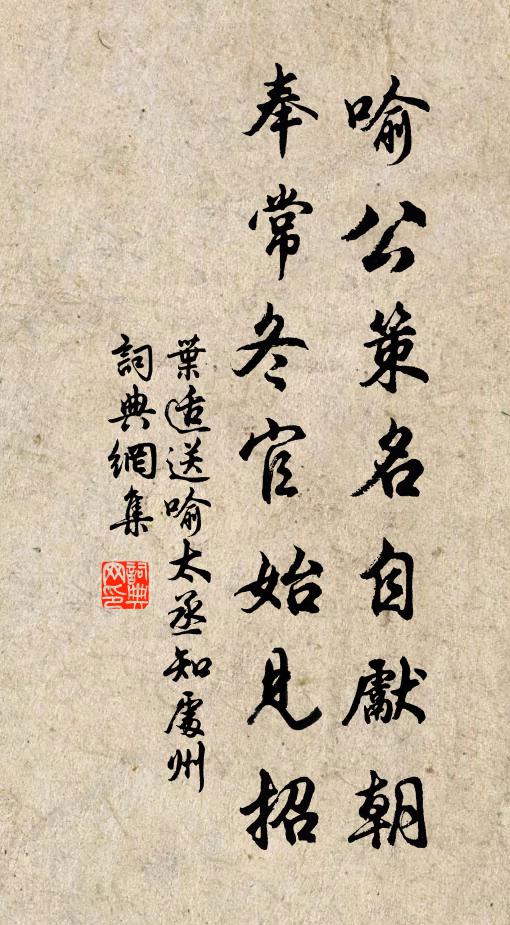 喻公策名自獻朝
奉常冬官始見招
葉適送喻太丞知處州
詞典網集
詞典網印